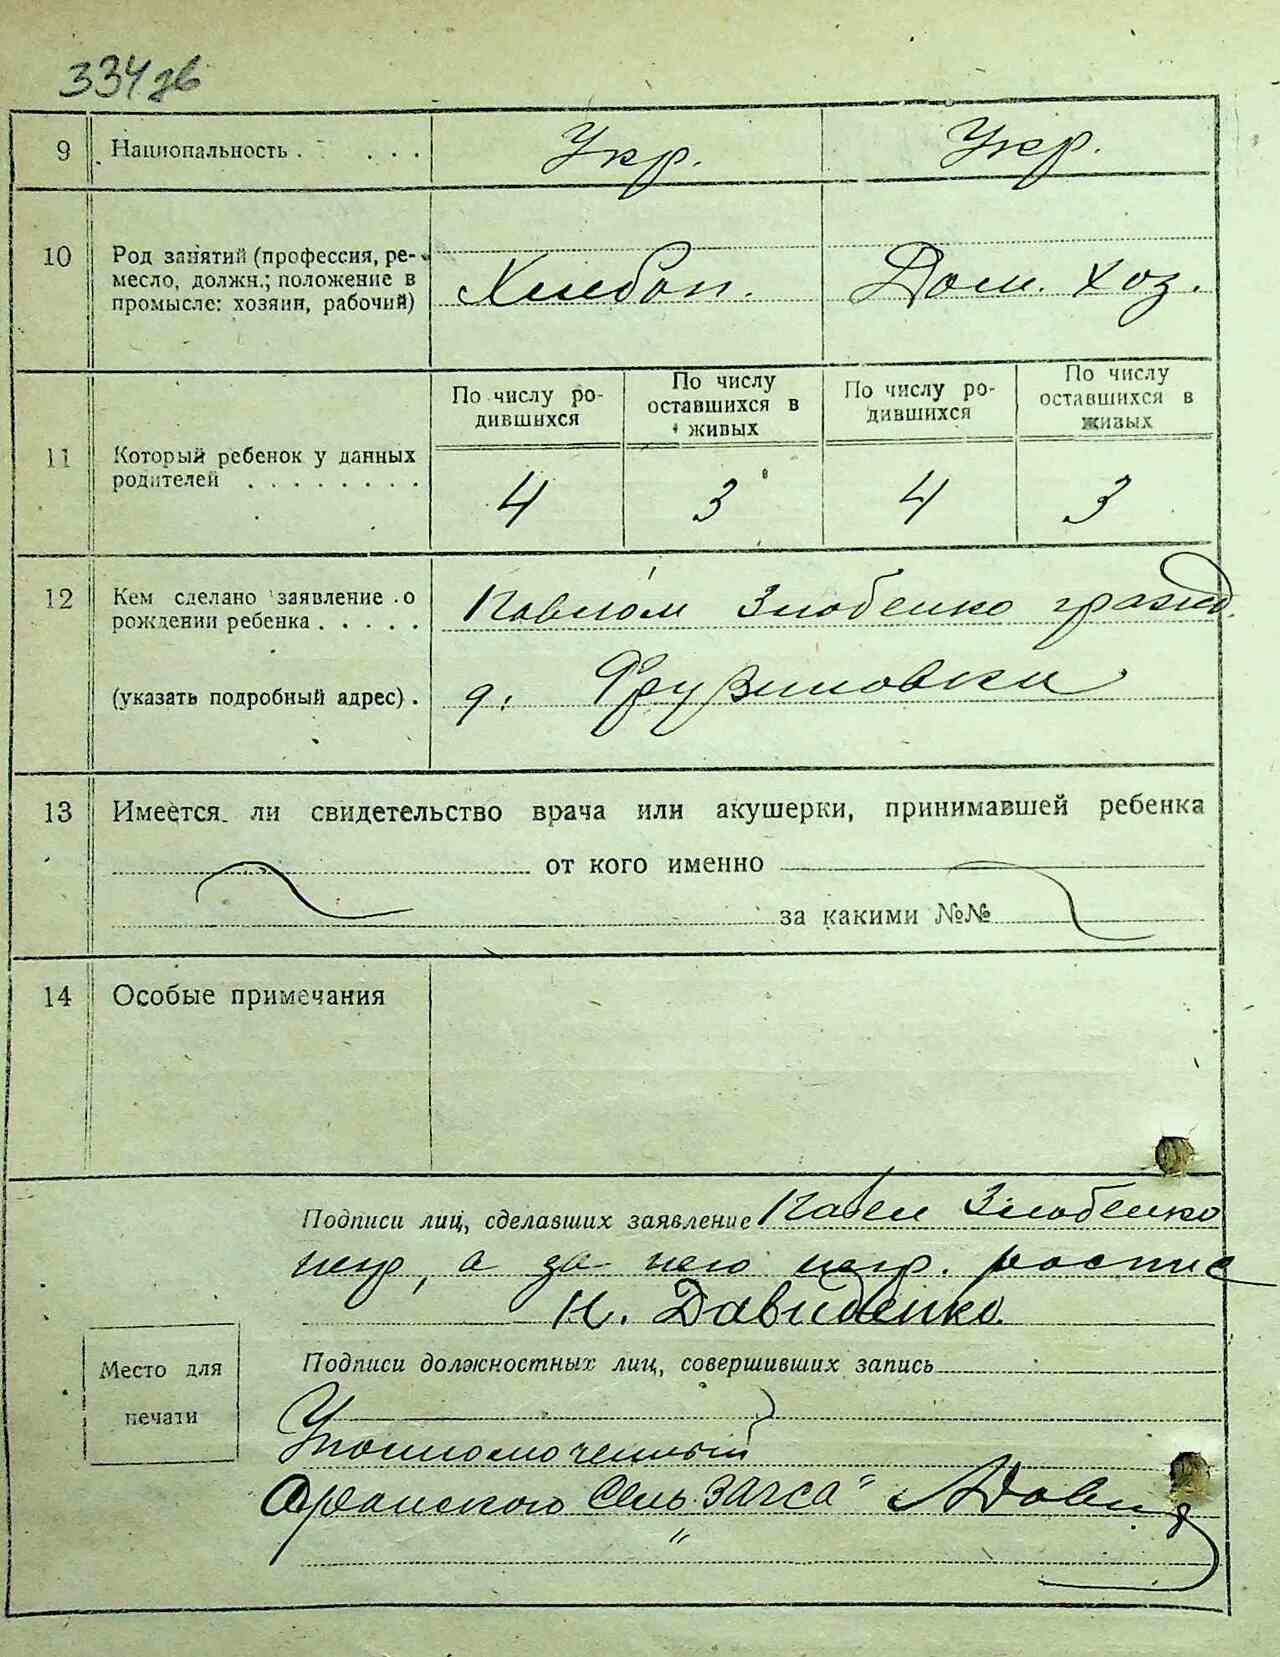 334 зв
9 Национальность . . . . Укр. Укр.
10 Род занятий (профессия, ре-
месло, должн.; положение в
промысле: хозяин, рабочий) Хлебоп. Дом. хоз.
11 Который ребенок у данных
родителей . . . . . . . .
По числу ро-
дившихся
По числу
оставшихся в
живых
По числу ро-
дившихся
По числу
оставшихся в
живых
4 3 4 3
12 Кем сделано заявление о
рождении ребенка . . . . .
Павлом Злобенко гражд.
(указать подробный адрес) .
д. Фрузиновки
13 Имеется ли свидетельство врача или акушерки, принимавшей ребенка
от кого именно
за какими №№
14 Особые примечания
Подписи лиц, сделавших заявление Павел Злобенко
негр, а за него негр. распис
Н. Давиденко
Место для
печати
Подписи должностных лиц, совершивших запись
Уполномоченный
Сель. ЗАГСа"